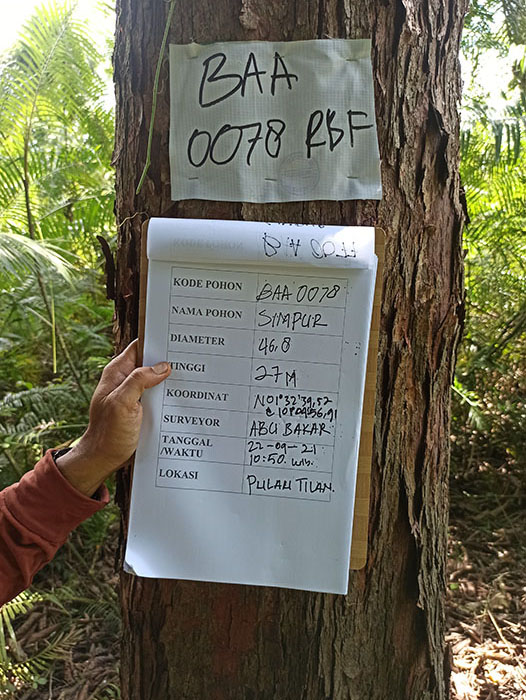 BAA
0078 RBF
KODE POHON BAA 0078
NAMA POHON SIMPUR
DIAMETER 46,8
TINGGI 27 M
KOORDINAT N01°32'39,52
SURVEYOR ABU BAKAR
TANGGAL /WAKTU 22-09-21
10:50. WIB.
LOKASI PULAU TILAN.